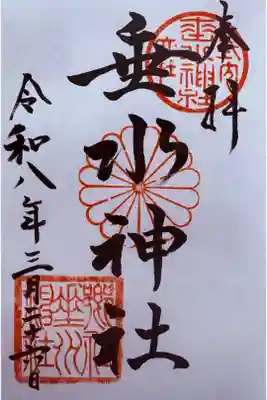 奉拝
垂水神社
令和八年三月二十六日